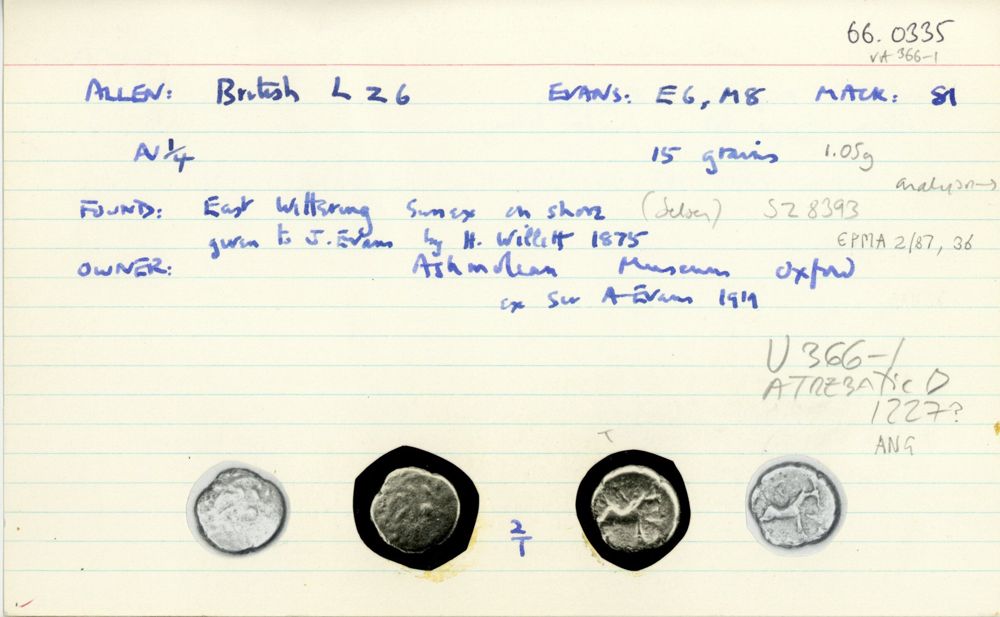 66.0335
VA 366-1
ALLEN: British L Z 6 EVANS: E6, M8 MACK: 81
N 1/4 15 grains 1.05g
analysis →
FOUND: East Wittering Sussex on shore (Selsey) SZ 8393
given to J. Evans by H. Willett 1875 EPMA 2/87, 36
OWNER: Ashmolean Museum Oxford
ex Sir A Evans 1919
V 366-1
ATREBATIC D
1227?
ANG
T
2/1